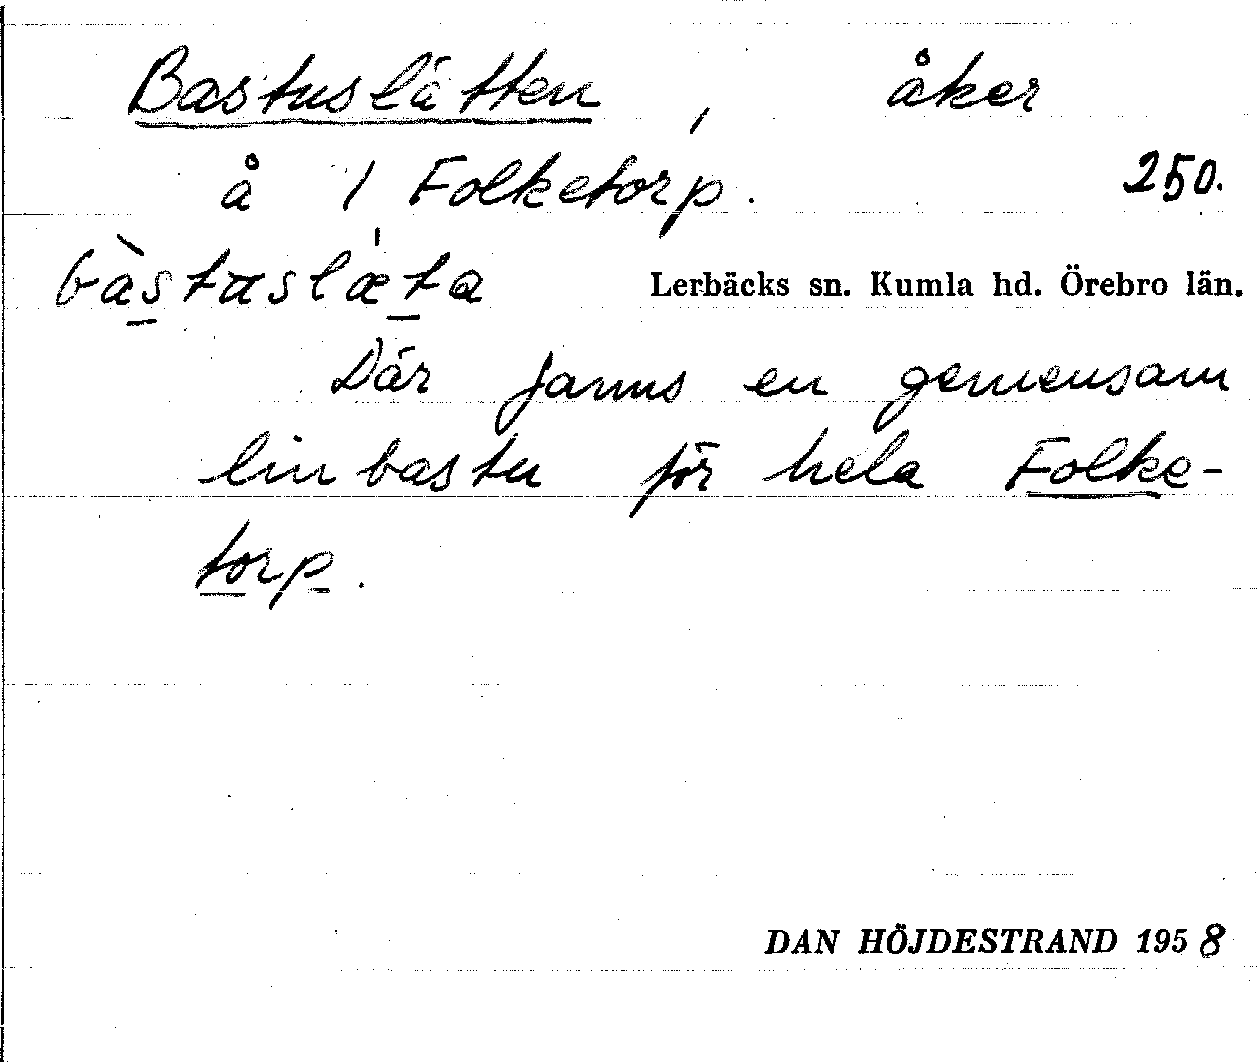 Bastuslätten, åker
å 1 Folketorp. 250.
bàstæslæ̍ta Lerbäcks sn. Kumla hd. Örebro län.
Där fanns en gemensam
linbastu för hela Folke-
torp.
DAN HÖJDESTRAND 1958